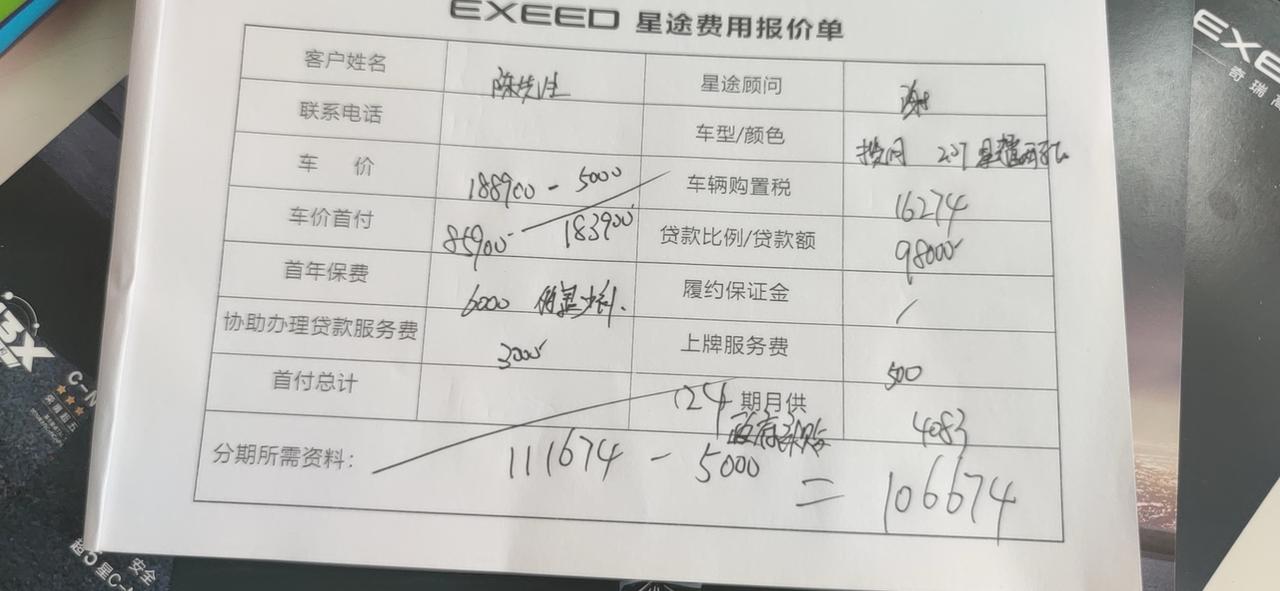 EXEED 星途费用报价单
客户姓名 陈先生 星途顾问 谢
联系电话 车型/颜色 揽月 2.0T 星耀四驱
车 价 188900 - 5000 车辆购置税 16274
车价首付 85900 183900 贷款比例/贷款额 98000
首年保费 6000 履约保证金 /
协助办理贷款服务费 3000 上牌服务费 500
首付总计 24 期月供 4083
政府补贴
分期所需资料: 111674 - 5000 = 106674
EXE
奇瑞高
C-N
安全
超5星C-